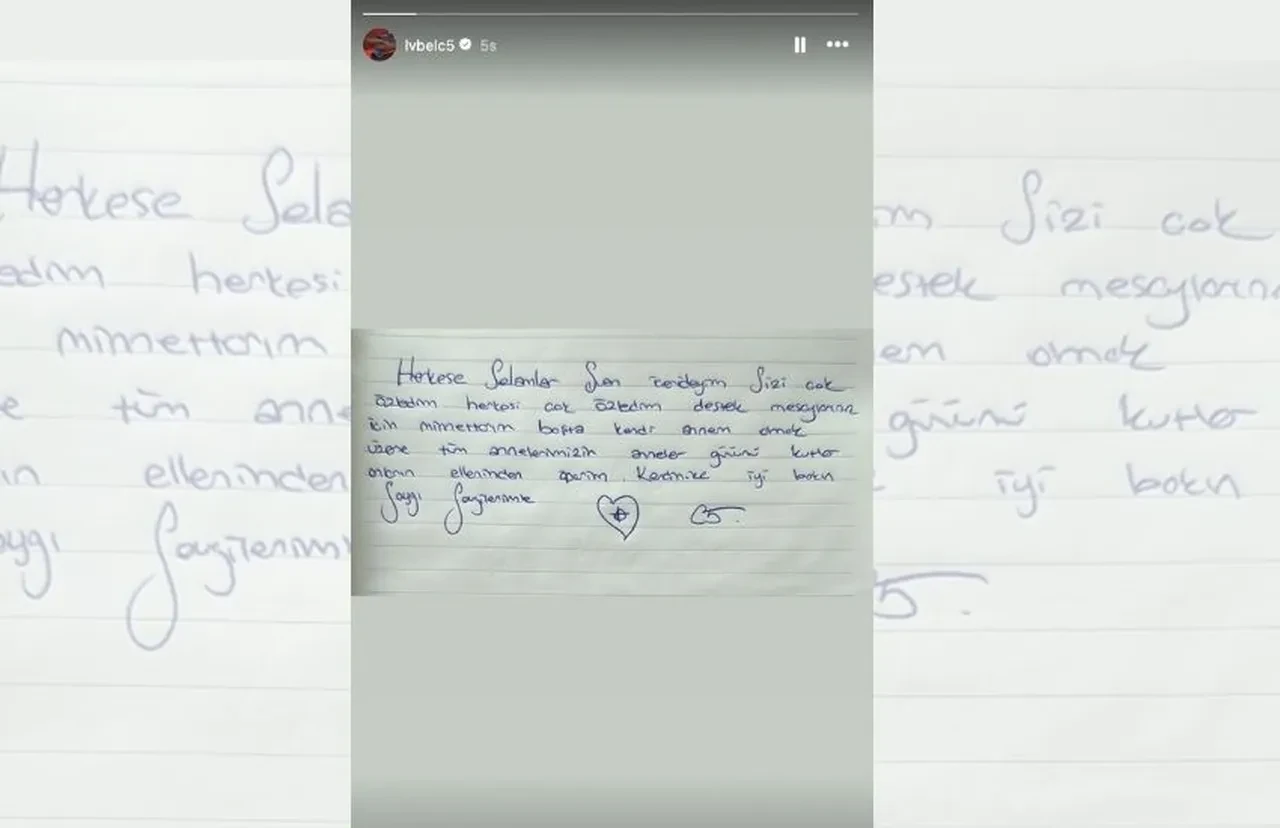 lvbelc5 5s
Herkese Selamlar Ben icerdeyim Sizi cok
özledim herkesi cok özledim destek mesajlarınız
icin minnettarım başta kendi annem olmak
üzere tüm annelerimizin anneler gününü kutlar
onların ellerinden öperim. Kendinize iyi bakın
Saygı Sevgilerimle C5.